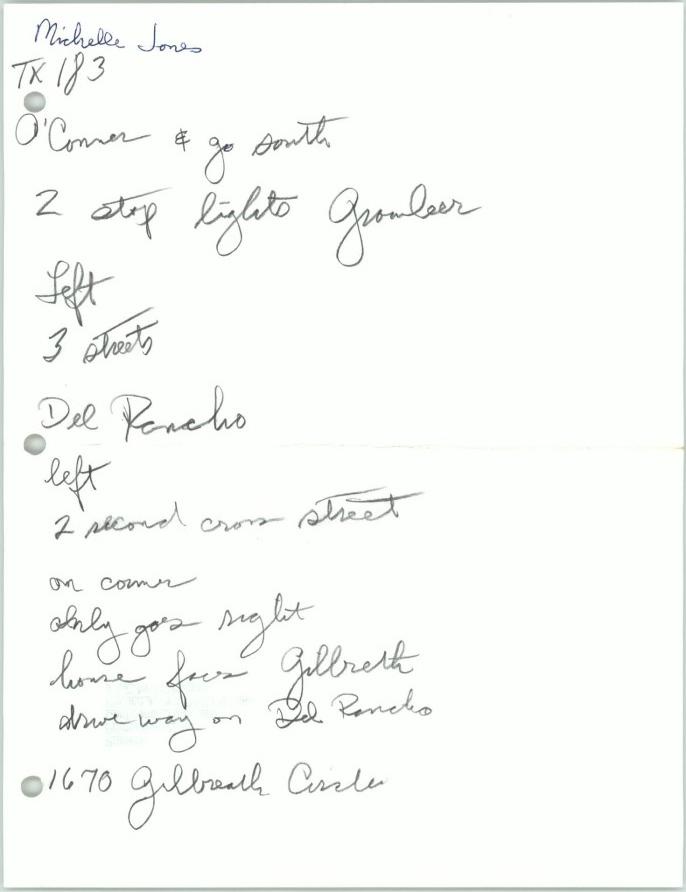 Michelle Jones
TX 183
O'Conner & go south
2 stop lights
Left
3 streets
Del Rancho
left
2 second cross street
on corner
only goes right
house faces Gilbreth
drive way on Del Rancho
1670 Gilbreath Circle